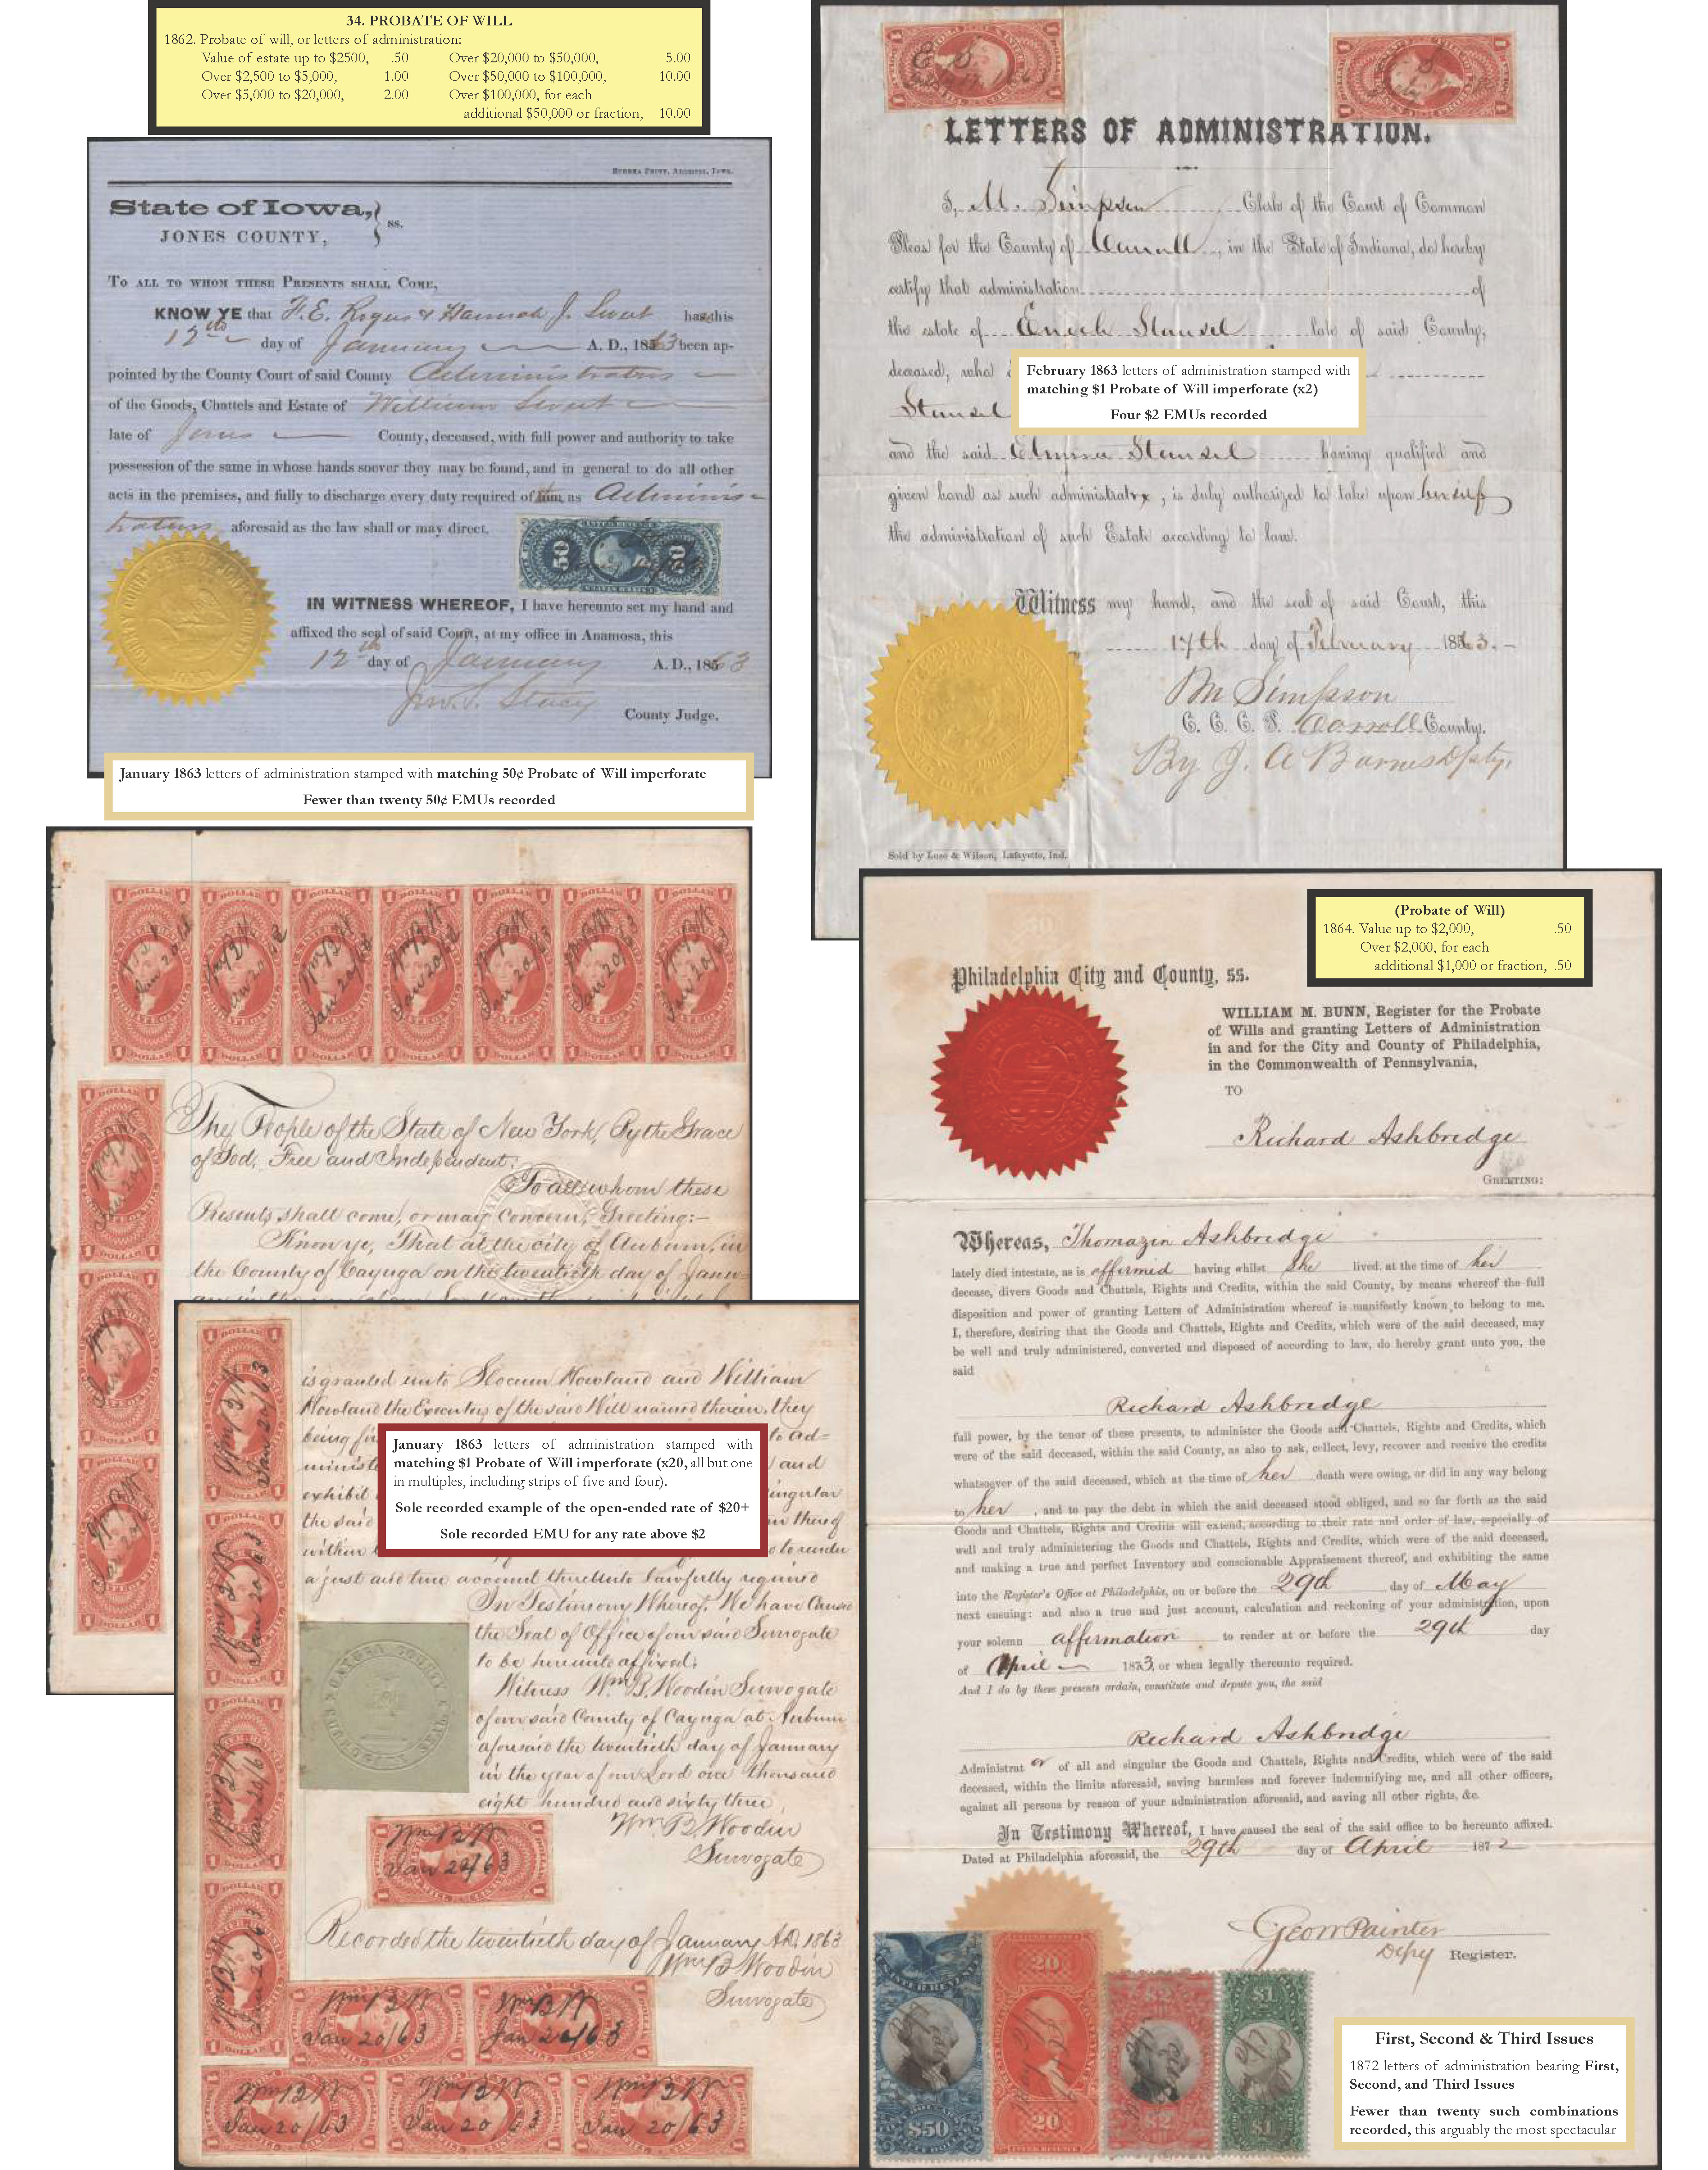 34. PROBATE OF WILL
1862. Probate of will, or letters of administration:
Value of estate up to $2500, .50 Over $20,000 to $50,000, 5.00
Over $2,500 to $5,000, 1.00 Over $50,000 to $100,000, 10.00
Over $5,000 to $20,000, 2.00 Over $100,000, for each
additional $50,000 or fraction, 10.00
EUREKA PRINT, ANAMOSA, IOWA.
State of Iowa, } ss.
JONES COUNTY,
TO ALL TO WHOM THESE PRESENTS SHALL COME,
KNOW YE that F. E. Rogus & Hannah J. Sweet has this
12th day of January A. D., 1863 been ap-
pointed by the County Court of said County Administrators
of the Goods, Chattels and Estate of William Sweet
late of Jones County, deceased, with full power and authority to take
possession of the same in whose hands soever they may be found, and in general to do all other
acts in the premises, and fully to discharge every duty required of him as Adminis-
trators aforesaid as the law shall or may direct.
50 50
IN WITNESS WHEREOF, I have hereunto set my hand and
affixed the seal of said Court, at my office in Anamosa, this
12th day of January A. D., 1863
Jno. S. Stacy
County Judge.
January 1863 letters of administration stamped with matching 50¢ Probate of Will imperforate
Fewer than twenty 50¢ EMUs recorded
LETTERS OF ADMINISTRATION.
I, M. Simpson Clerk of the Court of Common
Pleas for the County of Carroll, in the State of Indiana, do hereby
certify that administration of
the estate of Enoch Stansel late of said County,
deceased, who
Stansel
February 1863 letters of administration stamped with
matching $1 Probate of Will imperforate (x2)
Four $2 EMUs recorded
and the said Elmina Stansel having qualified and
given bond as such administratrx, is duly authorized to take upon herself
the administration of such Estate according to law.
Witness my hand, and the seal of said Court, this
17th day of February 1863.
M Simpson
C. C. C. P. Carroll County.
By J. A Barnes Dpty.
Sold by Luse & Wilson, Lafayette, Ind.
1 DOLLAR 1
The People of the State of New York, By the Grace
of God, Free and Independent:
To all whom these
Presents shall come, or may concern, Greeting:—
Know ye, That at the city of Auburn, in
the County of Cayuga on the twentieth day of Janu-
is granted unto Slocum Howland and William
Howland the Executors of the said Will named therein, they
being fi to ad-
ministe and
exhibit singular
the said thereof
within to render
a just and true account thereunto lawfully required
January 1863 letters of administration stamped with
matching $1 Probate of Will imperforate (x20, all but one
in multiples, including strips of five and four).
Sole recorded example of the open-ended rate of $20+
Sole recorded EMU for any rate above $2
In Testimony Whereof, We have Caused
the Seal of Office of our said Surrogate
to be hereunto affixed;
Witness Wm B. Woodin Surrogate
of our said County of Cayuga at Auburn
aforesaid the twentieth day of January
in the year of our Lord one thousand
eight hundred and sixty three
Wm B Woodin
Surrogate
Wm B W
Jan 20/63
Recorded the twentieth day of January A.D. 1863
Wm B Woodin
Surrogate
Wm B W Wm B W
Jan 20/63 Jan 20/63
Wm B W Wm B W Wm B W
Jan 20/63 Jan 20/63 Jan 20/63
(Probate of Will)
1864. Value up to $2,000, .50
Over $2,000, for each
additional $1,000 or fraction, .50
Philadelphia City and County, ss.
WILLIAM M. BUNN, Register for the Probate
of Wills and granting Letters of Administration
in and for the City and County of Philadelphia,
in the Commonwealth of Pennsylvania,
TO
Richard Ashbridge
GREETING:
Whereas, Thomazin Ashbridge
lately died intestate, as is affirmed having whilst She lived, at the time of her
decease, divers Goods and Chattels, Rights and Credits, within the said County, by means whereof the full
disposition and power of granting Letters of Administration whereof is manifestly known to belong to me.
I, therefore, desiring that the Goods and Chattels, Rights and Credits, which were of the said deceased, may
be well and truly administered, converted and disposed of according to law, do hereby grant unto you, the
said
Richard Ashbridge
full power, by the tenor of these presents, to administer the Goods and Chattels, Rights and Credits, which
were of the said deceased, within the said County, as also to ask, collect, levy, recover and receive the credits
whatsoever of the said deceased, which at the time of her death were owing, or did in any way belong
to her, and to pay the debt in which the said deceased stood obliged, and so far forth as the said
Goods and Chattels, Rights and Credits will extend, according to their rate and order of law, especially of
well and truly administering the Goods and Chattels, Rights and Credits, which were of the said deceased,
and making a true and perfect Inventory and conscionable Appraisement thereof, and exhibiting the same
into the Register's Office at Philadelphia, on or before the 29th day of May
next ensuing: and also a true and just account, calculation and reckoning of your administration, upon
your solemn affirmation to render at or before the 29th day
of April 1873, or when legally thereunto required.
And I do by these presents ordain, constitute and depute you, the said
Richard Ashbridge
Administrat or of all and singular the Goods and Chattels, Rights and Credits, which were of the said
deceased, within the limits aforesaid, saving harmless and forever indemnifying me, and all other officers,
against all persons by reason of your administration aforesaid, and saving all other rights, &c.
In Testimony Whereof, I have caused the seal of the said office to be hereunto affixed.
Dated at Philadelphia aforesaid, the 29th day of April 1872
Geo W Painter
Depy Register.
20 $2 $1
$50 20 $1
First, Second & Third Issues
1872 letters of administration bearing First,
Second, and Third Issues
Fewer than twenty such combinations
recorded, this arguably the most spectacular